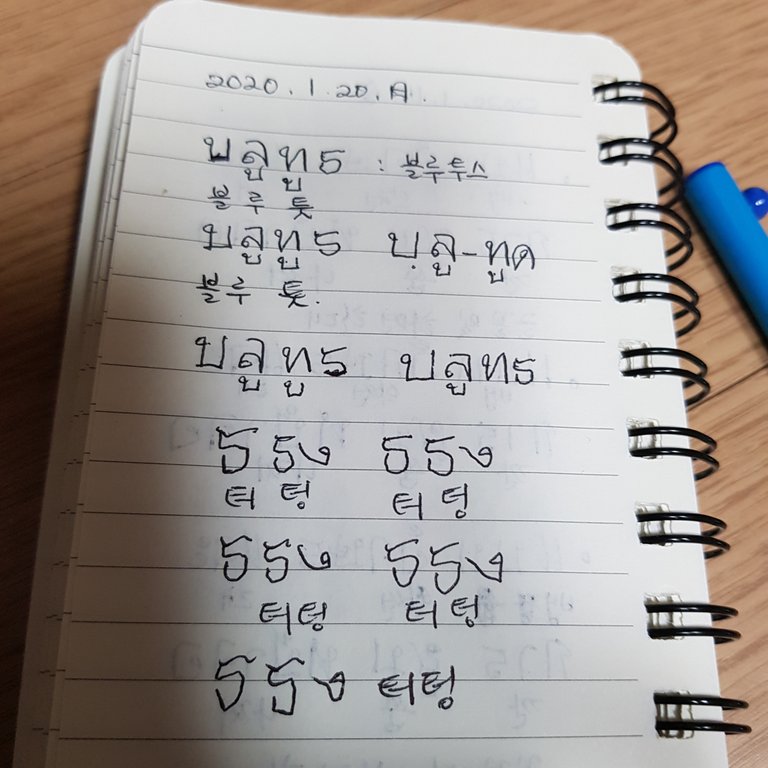 2020.1.20.月.
บลูทูธ : 블루투스
블루 툿
บลูทูธ บลู-ทูด
블루 툿.
บลูทูธ บลูทธ
ธ ธง ธ ธง
터 텅 터 텅
ธ ธง ธ ธง
터텅 터텅
ธ ธง 터텅